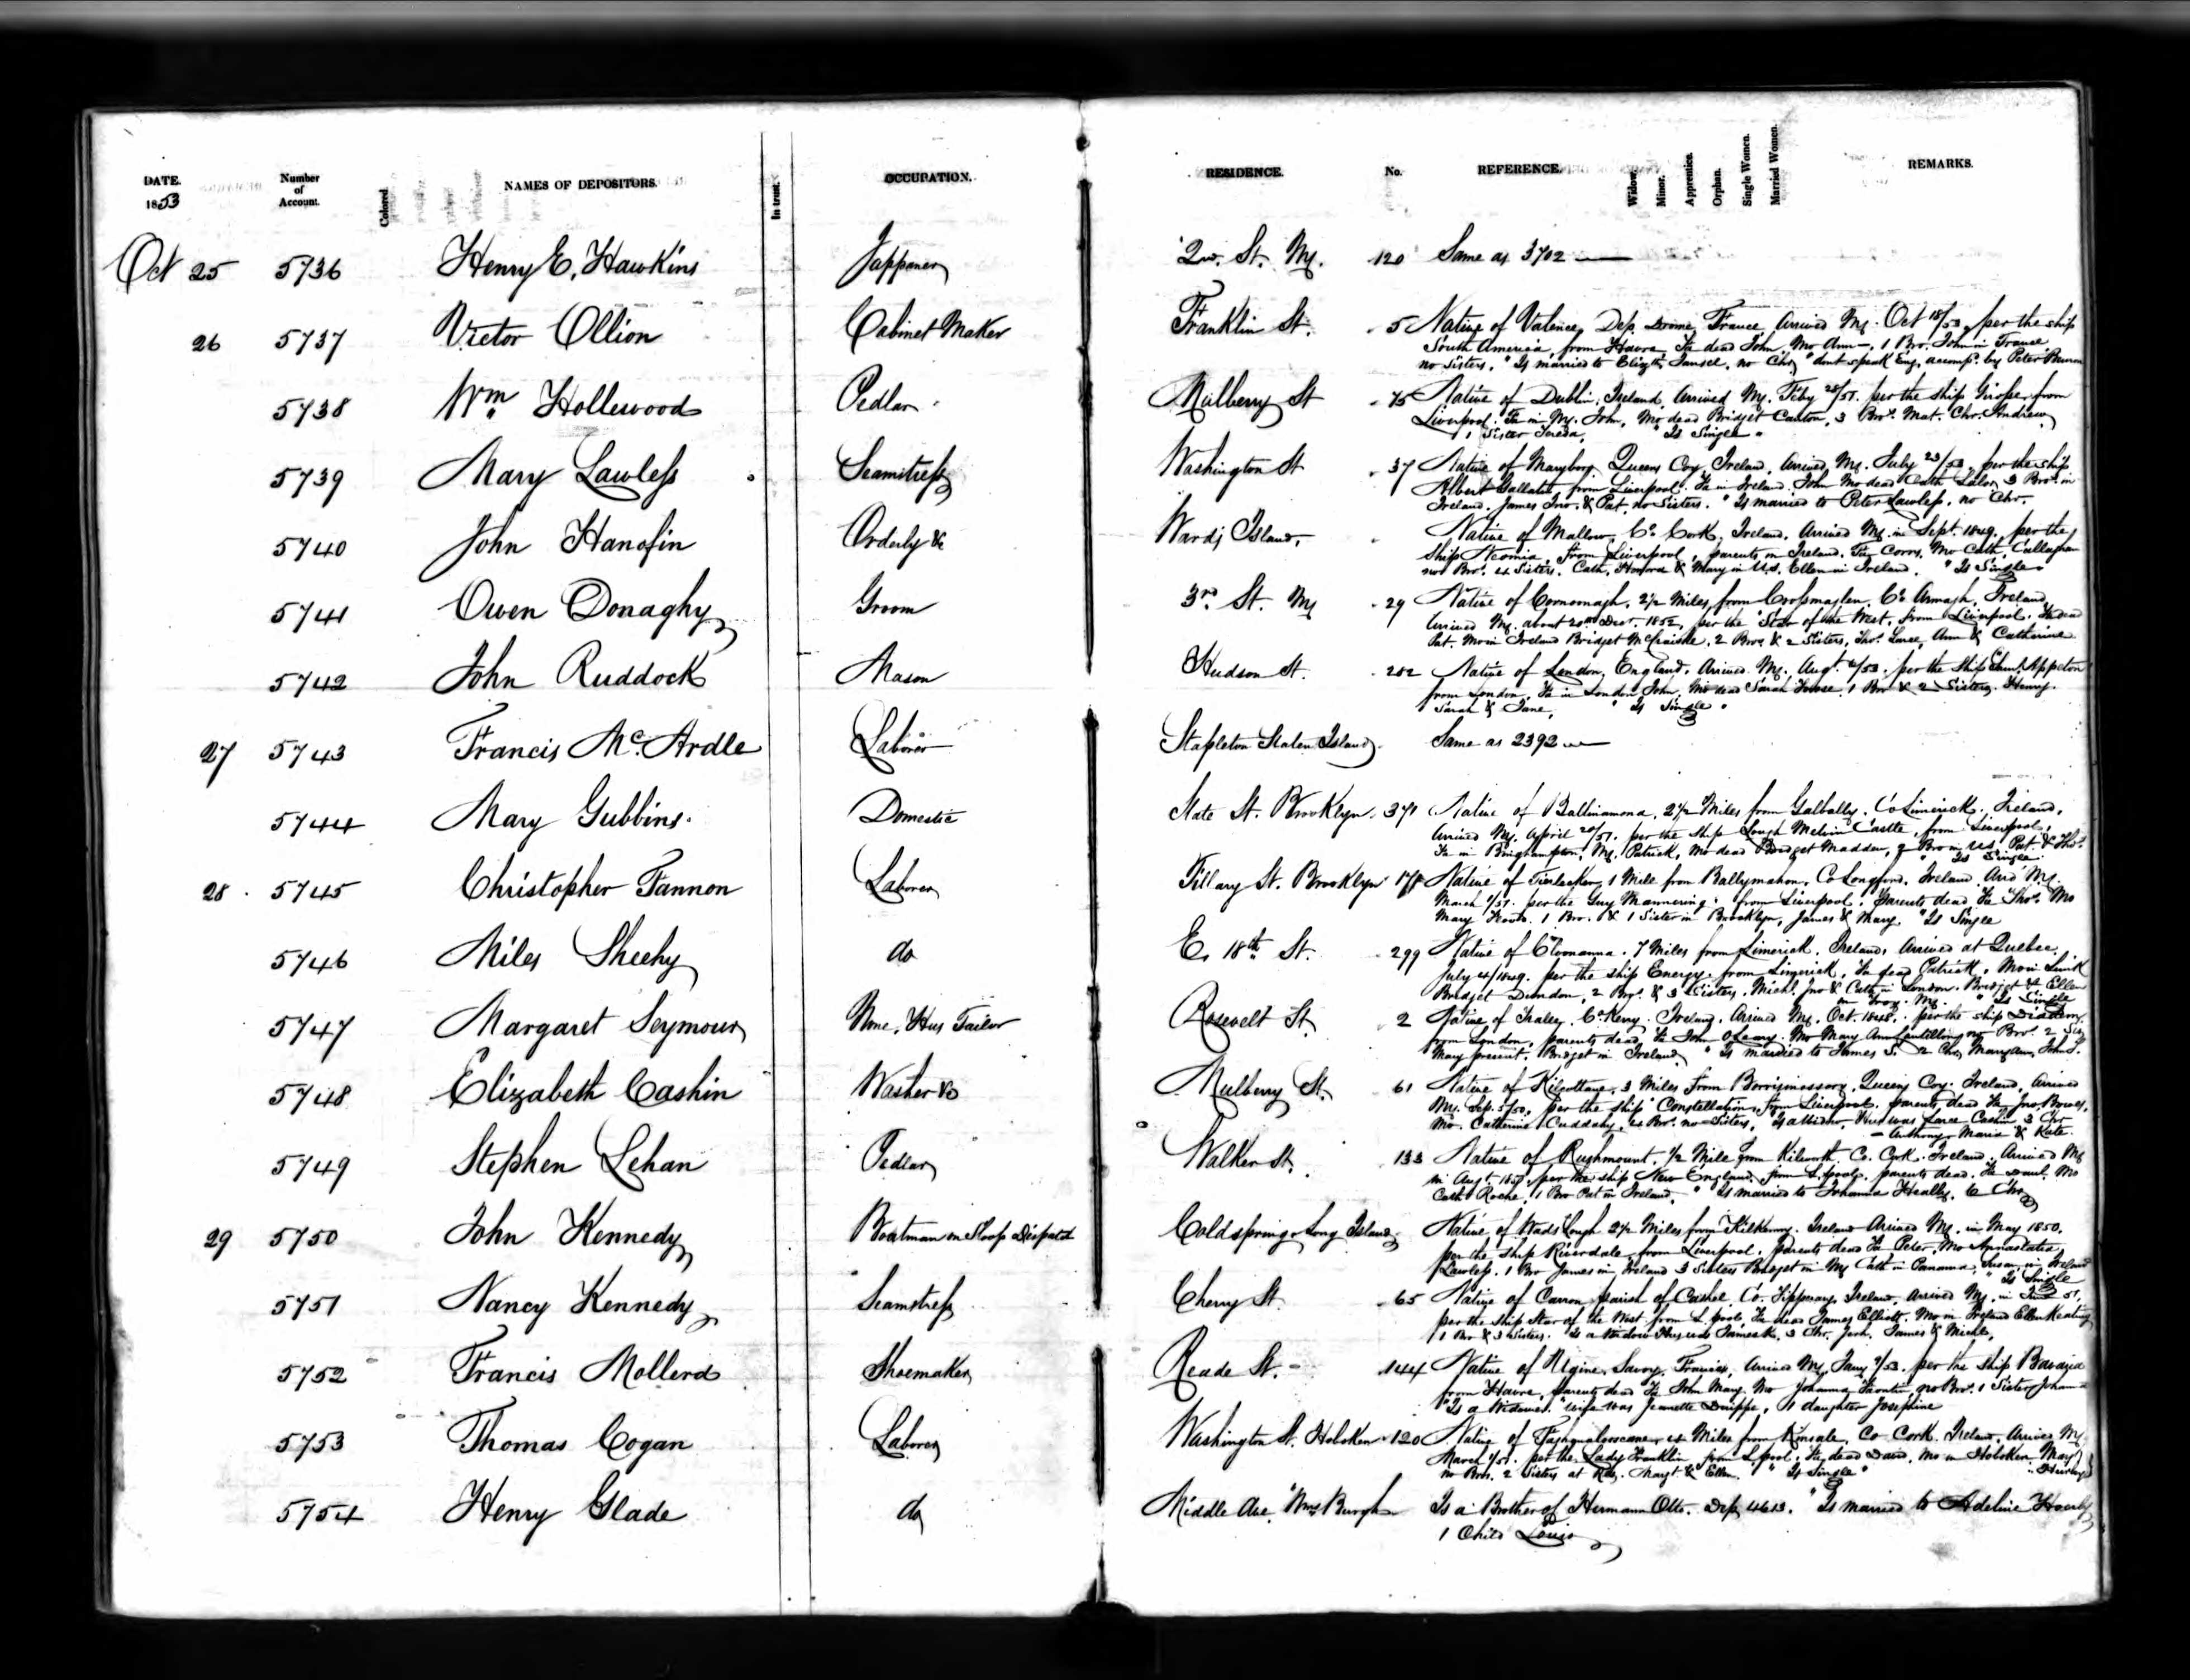 DATE. 1853 Number of Account. Colored. NAMES OF DEPOSITORS. In trust. OCCUPATION. RESIDENCE. No. REFERENCE. Widow. Minor. Apprentice. Orphan. Single Women. Married Women. REMARKS.
Oct 25 5736 Henry E. Hawkins Jappaner 2nd. St. NY. 120 Same as 3702
26 5737 Victor Ollion Cabinet Maker Franklin St. 5 Native of Valence, Dep. Drome, France, Arrived NY. Oct 18/53, per the ship
South America, from Havre, Fa dead John, Mo Ann, 1 Bro. John in France,
no Sisters, "Is married to Elizth. no Chn "dont speak Eng. accomp. by Peter
5738 Wm Hollewood Pedlar Mulberry St 75 Native of Dublin, Ireland Arrived NY. Feby 28/51. per the ship from
Liverpool. Fa in NY. John, Mo dead Bridget Canton, 3 Bros. Mat. Chr. Andrew,
1 Sister Teresa, "Is Single"
5739 Mary Lawless Seamstress Washington St 37 Native of Marybory Queens Coy, Ireland, Arrived NY. July 23/53. per the ship
Albert Gallatin from Liverpool. Fa in Ireland John Mo dead Cath Lalor, 3 Bros. in
Ireland. James Jno. & Pat. no Sisters. "Is married to Peter Lawless, no Chr.
5740 John Hanofin Orderly &c Wards Island, Native of Mallow, Co. Cork, Ireland, Arrived NY. in Sept. 1849, per the
ship from Liverpool, parents in Ireland. Fa Corns. Mo Cath. Callaghan
no Bro. 4 Sisters, Cath, Honora & Mary in U.S. Ellen in Ireland. "Is Single"
5741 Owen Donaghy Groom 3rd. St. NY 29 Native of Cornonagh, 2½ Miles from Crossmaglen, Co. Armagh, Ireland
Arrived NY. about 20th Decr. 1852, per the Star of the West, from Liverpool, Fa dead
Pat. Mo in Ireland Bridget 2 Bros. & 2 Sisters, Thos. Lauce, Ann & Catherine
5742 John Ruddock Mason Hudson St. 202 Native of London, England, Arrived NY. Augt. per the Ship Saml. Appleton
from London, Fa in London John, Mo dead Sarah 1 Bro & 2 Sisters. Henry.
Sarah & Jane, "Is Single"
27 5743 Francis McArdle Laborer Stapleton Staten Island. Same as 2392
5744 Mary Gubbins. Domestic State St. Brooklyn. 371 Native of Ballinamona, 2½ Miles from Galbally. Co Limerick. Ireland,
Arrived NY. April 20/51. per the ship Lough Melvin Castle, from Liverpool,
Fa in Binghampton, NY. Patrick, Mo dead Bridget Madden, 2 Bro in U.S. Pat. & Thos.
"Is Single.
28 5745 Christopher Fannon Laborer Tillary St. Brooklyn Native of 1 Mile from Ballymahon, Co Longford, Ireland. Arrd NY.
March per the Guy Mannering from Liverpool. Parents dead Fa Thos. Mo
Mary 1 Bro. & 1 Sister in Brooklyn, James & Mary. "Is Single
5746 Miles Sheehy do E. 18th St. 299 Native of Cloonanna. 7 Miles from Limerick, Ireland. Arrived at Quebec,
July 4/1849. per the ship Energy. from Limerick, Fa dead Patrick, Mo in
Bridget Dundon, 2 Bros. & 3 Sisters. Michl. Jno & Cath in London. Bridget & Ellen
in Troy, NY. "Is Single
5747 Margaret Seymour None, Hus Tailor Rosevelt St. 2 Native of Tralee, Co. Kerry. Ireland. Arrived NY. Oct. 1848, per the ship Diadem,
from London, parents dead Fa John O'Leary. Mo Mary Ann no Bro. 2 Sis
Mary present. Bridget in Ireland "Is married to James S. 2 Chn Mary Ann, John J.
5748 Elizabeth Cashin Washer &c Mulberry St. 61 Native of 3 Miles from Queens Coy. Ireland, Arrived
NY. Sep. 5/50, per the ship Constellation, from Liverpool. parents dead Fa Jno. Bowes,
Mo. Catherine Cuddahy, 4 Bro. no Sisters, Is a Widow. Hus was Lauce Cashin 3 Chr
Anthony. Maria & Kate.
5749 Stephen Lehan Pedlar Walker St. 133 Native of Rushmount, ½ Mile from Kilworth. Co. Cork. Ireland, Arrived NY
in Augt. per the ship New England, from L.pool. parents dead. Fa Danl. Mo
Cath Roche. 1 Bro Pat in Ireland, "Is married to Johanna Heally. 6 Chn
29 5750 John Kennedy Boatman on Sloop Dispatch Coldspring Long Island Native of 2½ Miles from Kilkenny. Ireland Arrived NY. in May 1850.
per the ship Riverdale from Liverpool. Parents dead Fa Peter, Mo
Lawless. 1 Bro James in Ireland 3 Sisters Bridget in NY Cath in Panama, Susan in Ireland
"Is Single
5751 Nancy Kennedy Seamstress Cherry St 65 Native of Carron parish of Cashel, Co. Tipperary, Ireland, Arrived NY. in
per the ship Star of the West from L.pool, Fa dead James Elliott. Mo in Ireland Ellen Keating
1 Bro & 3 Sisters. Is a Widow Hus was James K, 3 Chr. James & Michl.
5752 Francis Mollerd Shoemaker Reade St. 144 Native of Savoy, France, Arrived NY. Jany per the ship Bavaria
from Havre, parents dead Fa John Mary. Mo Johanna no Bro. 1 Sister Johana
"Is a Widower" wife was Jeanette 1 daughter Josephine
5753 Thomas Cogan Laborer Washington St. Hoboken 120 Native of 4 Miles from Kinsale, Co Cork, Ireland, Arrived NY
March per the Lady Franklin from L.pool, Fa dead David, Mo in Hoboken Mary
no Bros. 2 Sisters at Margt & Ellen. "Is Single" Hurley
5754 Henry Glade do Middle Ave. Wms Burgh Is a Brother of Hermann Otto. Dep. 4613. "Is married to Adeline
1 Child Louis